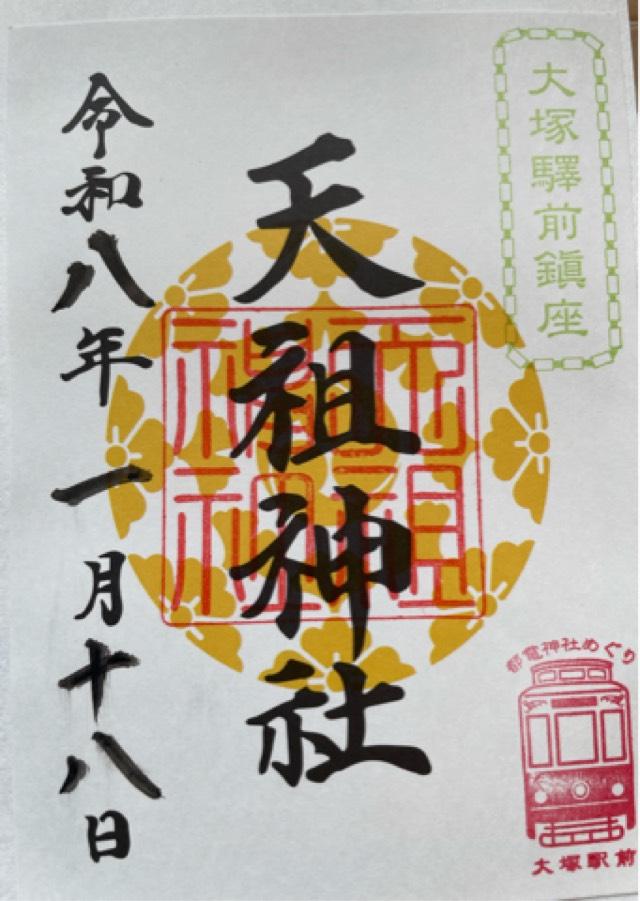 大塚驛前鎮座
天祖神社
令和八年一月十八日
天祖神社
都電神社めぐり
大塚駅前